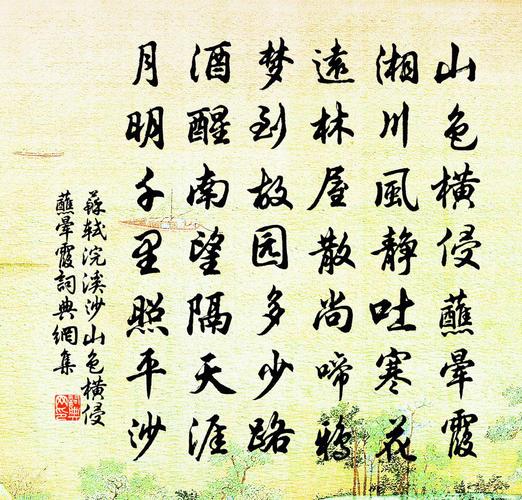 山色橫侵蘸暈霞
湘川風静吐寒花
遠林屋散尚啼鴉
梦到故园多少路
酒醒南望隔天涯
月明千里照平沙
蘇轼浣溪沙山色橫侵
蘸暈霞詞典網集